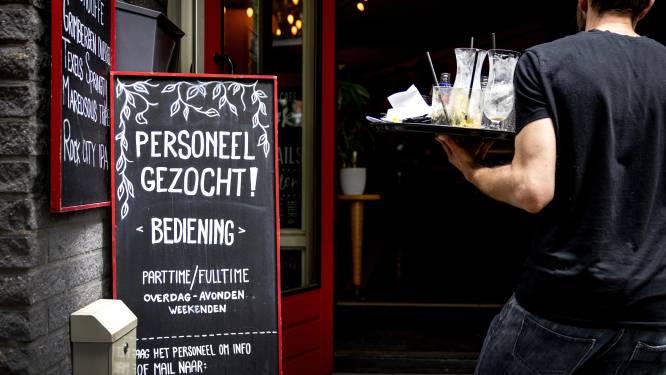 GRIMBERGEN
TEXELS SPRING
MAREDSOUS
ROCK CITY IPA
PERSONEEL
GEZOCHT!
< BEDIENING >
PARTTIME/FULLTIME
OVERDAG - AVONDEN
WEEKENDEN
AAG HET PERSONEEL OM INFO
OF MAIL NAAR: